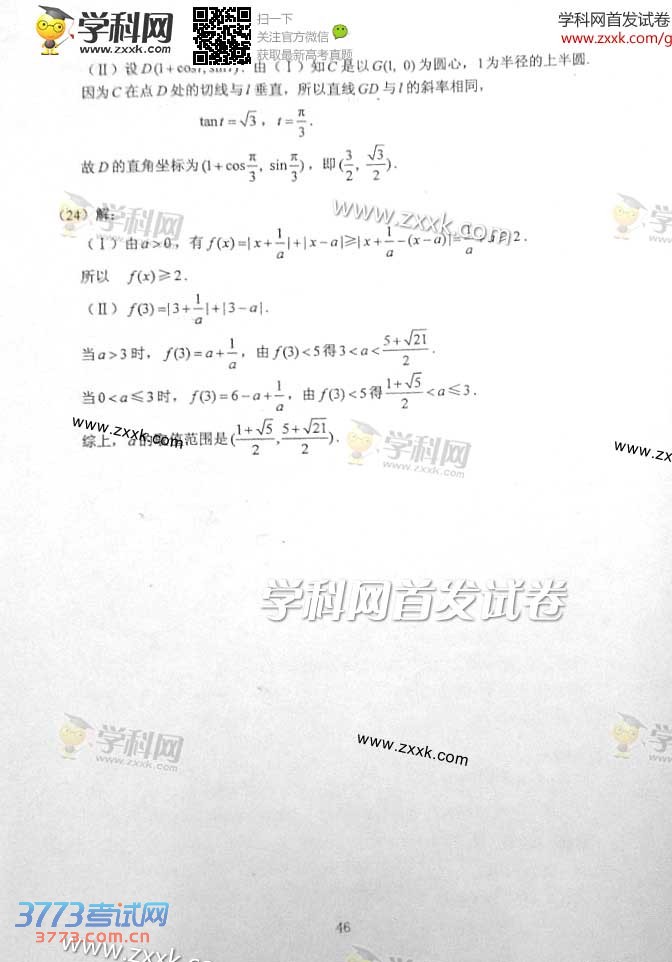 学科网
www.zxxk.com
扫一下
关注官方微信
获取最新高考真题
学科网首发试卷
www.zxxk.com/g
(Ⅱ) 设 D(1+cost, sint). 由 (Ⅰ) 知 C 是以 G(1, 0) 为圆心, 1 为半径的上半圆.
因为 C 在点 D 处的切线与 l 垂直, 所以直线 GD 与 l 的斜率相同,
tan t = √3, t = π/3.
故 D 的直角坐标为 (1+cos π/3, sin π/3), 即 (3/2, √3/2).
学科网
zxxk.com
www.zxxk.com
(24) 解:
(Ⅰ) 由 a>0, 有 f(x)=|x+1/a|+|x-a|≥|x+1/a-(x-a)|=1/a+a≥2.
所以 f(x)≥2.
(Ⅱ) f(3)=|3+1/a|+|3-a|.
当 a>3 时, f(3)=a+1/a, 由 f(3)<5 得 3<a<(5+√21)/2.
当 0<a≤3 时, f(3)=6-a+1/a, 由 f(3)<5 得 (1+√5)/2<a≤3.
www.zxxk.com
综上, a 的取值范围是 ((1+√5)/2, (5+√21)/2).
学科网
zxxk.com
www.zxxk
学科网首发试卷
学科网
zxxk.com
www.zxxk.com
46
3773考试网
3773.com.cn
www.zxxk.com
学科网